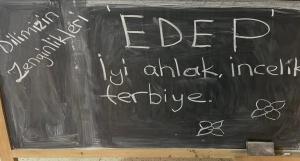 Dilimizin
Zenginlikleri
'EDEP'
İyi ahlak, incelik
terbiye.